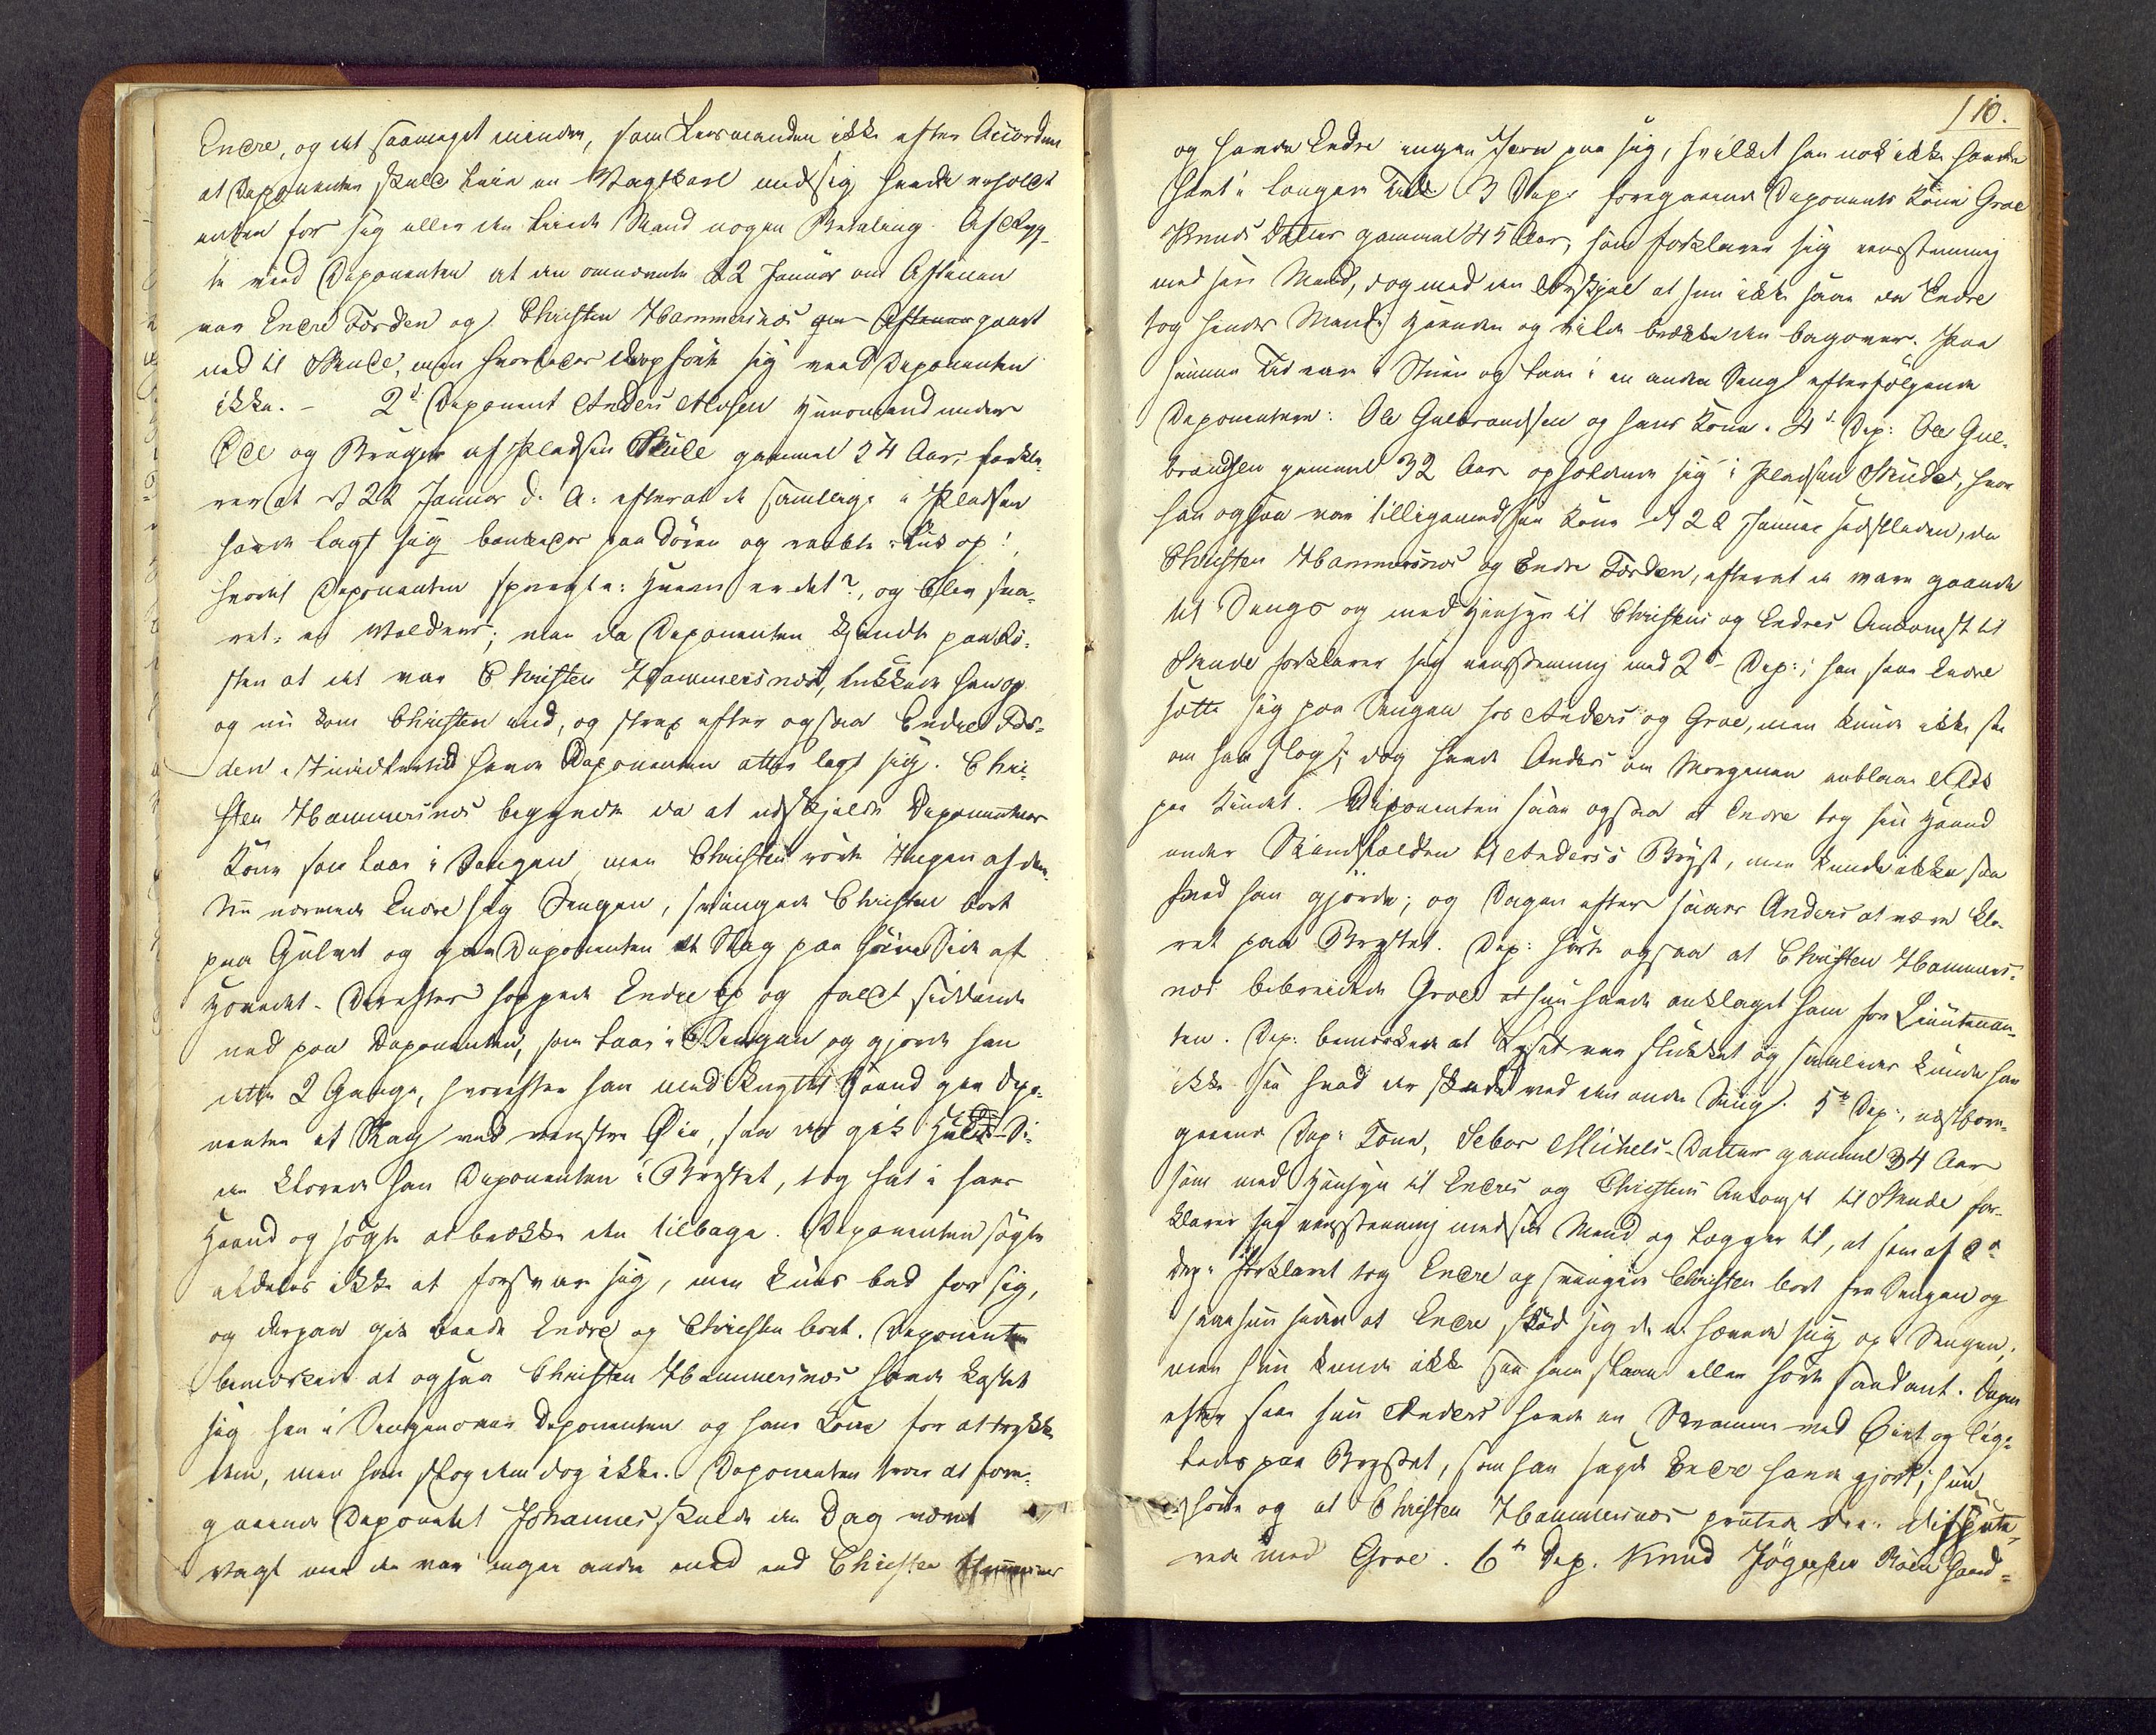 Endre, og det saameget mindre, som Lensmanden ikke efter Accorden
at Deponenten skulde leie en Vagtkarl med sig havde erholdt
enten for sig eller den leiede Mand nogen Betaling. Af Ryg-
te veed Deponenten at den omnævnte 22 Januar om Aftenen
var Endre Forden og Christen Hammersnæs gaaet
ned til Skude, men hvorledes de opførte sig veed Deponenten
ikke. – 2d Deponent Anders Huusmand under
og Bruger af Pladsen gammel 54 Aar, forkla-
rer at d 22 Januar d. A. efterat de samtlige i Pladsen
havde lagt sig bankedes paa Døren og raabte: Luk op!,
hvortil Deponenten spurgte: Hvem er det?, og blev sva-
ret: en Valdres; men da Deponenten kjendte paa Rø-
sten at det var Christen Hammersnæs, lukkede han op
og nu kom Christen ind, og strax efter ogsaa Endre For-
den imidlertid havde Deponenten atter lagt sig. Chri-
sten Hammersnæs begyndte da at udskjelde Deponentens
Kone som laae i Sengen, men Christen rørte Ingen af dem.
Nu nærmede Endre sig Sengen, svingede Christen bort
paa Gulvet og gav Deponenten et Slag paa høire Side af
Hovedet. Derefter hoppede Endre op og faldt siddende
ned paa Deponenten, som laae i Sengen og gjorde han
dette 2 Gange, hvorefter han med knyttet Haand gav Depo-
nenten et Slag ved venstre Øie, saa der gik Hul. Si-
den klorede han Deponenten i Brystet, tog fat i hans
Haand og søgte at brække den tilbage. Deponenten søgte
aldeles ikke at forsvare sig, men kuns bad for sig,
og derpaa gik baade Endre og Christen bort. Deponenten
bemærkede at ogsaa Christen Hammersnæs havde kastet
sig hen i Sengen over Deponenten og hans Kone for at trykke
dem, men han slog dem dog ikke. Deponenten troer at fore-
gaaende Deponent Johannes skulde den Dag været
Vagt men der var ingen anden med end Christen Hammersnæs
110.
og havde Endre ingen Jern paa sig, hvilket han nok ikke havde
havt i længere Tid. 3 Dep: foregaaende Deponents Kone Groe
Knuds Datter gammel 45 Aar, som forklarer sig eensstemmig
med sin Mand, dog med den Forskjel at hun ikke saae da Endre
tog hendes Mands Haanden og vilde brække den bagover. Paa
samme Tid vare i Stuen og laae i en anden Seng efterfølgende
Deponentere: Ole Gulbrandsen og hans Kone. 4d Dep: Ole Gul-
brandsen gammel 32 Aar opholdende sig i Pladsen Skude, hvor
han ogsaa var tilligemed sin Kone d 22 Januar sidstleden, da
Christen Hammersnæs og Endre Forden, efterat de vare gaaede
til Sengs og med Hensyn til Christens og Endres Ankomst til
Skude forklarer sig eensstemmig med 2d Dep:; han saae Endre
satte sig paa Sengen hos Anders og Groe, men kunde ikke see
om han slog; dog havde Anders om Morgenen en blaae
paa Kindet. Deponenten saae ogsaa at Endre tog sin Haand
under Skindfælden til Anderses Bryst, men kunde ikke see
hvad han gjorde; og Dagen efter saaes Anders at være klo-
ret paa Brystet. Dep: hørte ogsaa at Christen Hammers-
næs bebreidede Groe at hun havde anklaget ham for Lieutenan-
ten. Dep: bemærkede at Lyset var slukket og saaledes kunde han
ikke see hvad der skeede ved den anden Seng. 5te Dep:, næstfore-
gaaende Dep: Kone, Michels-Datter gammel 34 Aar
som med Hensyn til Endres og Christens Ankomst til Skude for-
klarer sig eensstemmig med sin Mand og lægger til, at som af 2d
Dep: forklaret tog Endre og svingede Christen bort fra Sengen og
saae hun siden at Endre skød sig d: e: hævede sig op i Sengen;
men hun kunde ikke see ham slaae eller hørte saadant. Dagen
efter saae hun Anders havde en Skramme ved Øiet og lige-
ledes paa Brystet, som han sagde Endre havde gjort; hun
hørte og at Christen Hammersnæs pratede d: e: disputé-
rede med Groe. 6te Dep. Knud